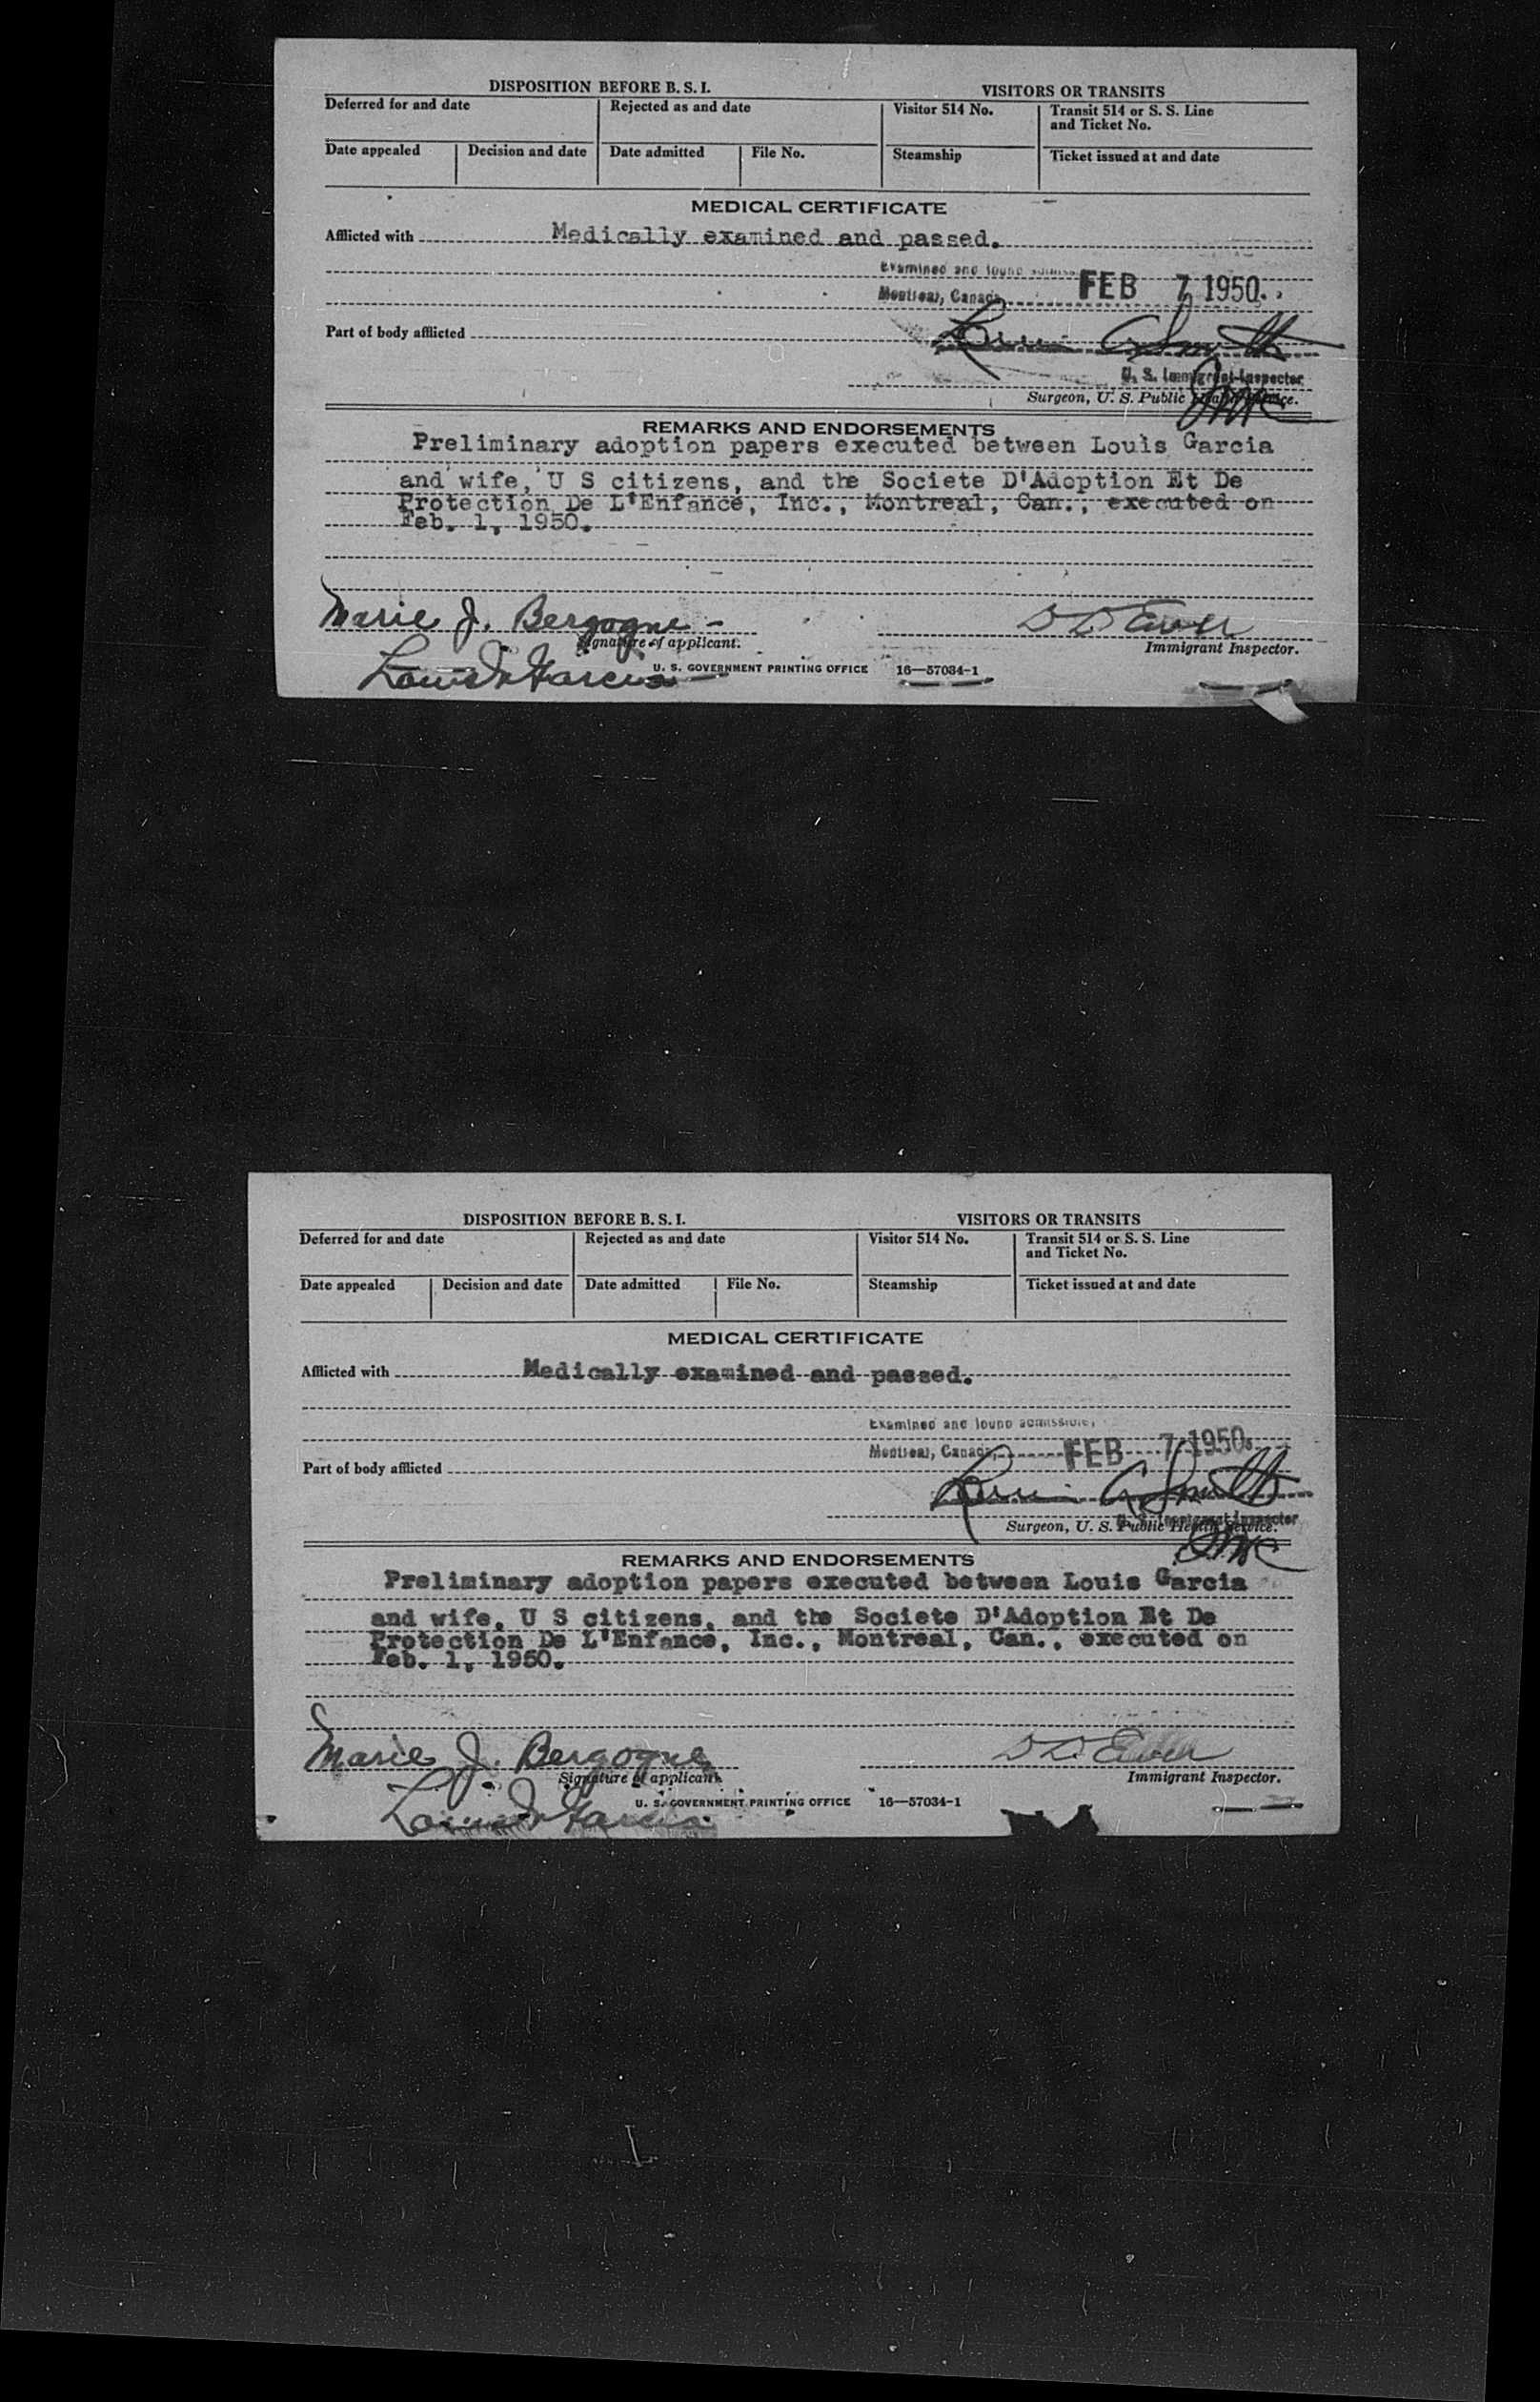 DISPOSITION BEFORE B. S. I. VISITORS OR TRANSITS
Deferred for and date Rejected as and date Visitor 514 No. Transit 514 or S. S. Line
and Ticket No.
Date appealed Decision and date Date admitted File No. Steamship Ticket issued at and date
MEDICAL CERTIFICATE
Afflicted with Medically examined and passed.
Examined and found
Montreal, Canada, FEB 7 1950.
Part of body afflicted Smith
U. S. Immigrant Inspector
Surgeon, U. S. Public Health Service.
REMARKS AND ENDORSEMENTS
Preliminary adoption papers executed between Louis Garcia
and wife, U S citizens, and the Societe D'Adoption Et De
Protection De L'Enfance, Inc., Montreal, Can., executed on
Feb. 1, 1950.
Marie J. Bergogne
Signature of applicant. Immigrant Inspector.
Louis Garcia U. S. GOVERNMENT PRINTING OFFICE 16—57034-1
DISPOSITION BEFORE B. S. I. VISITORS OR TRANSITS
Deferred for and date Rejected as and date Visitor 514 No. Transit 514 or S. S. Line
and Ticket No.
Date appealed Decision and date Date admitted File No. Steamship Ticket issued at and date
MEDICAL CERTIFICATE
Afflicted with Medically examined and passed.
Examined and found admissible,
Montreal, Canada, FEB 7 1950.
Part of body afflicted Smith
U. S. Immigrant Inspector
Surgeon, U. S. Public Health Service.
REMARKS AND ENDORSEMENTS
Preliminary adoption papers executed between Louis Garcia
and wife, U S citizens, and the Societe D'Adoption Et De
Protection De L'Enfance, Inc., Montreal, Can., executed on
Feb. 1, 1950.
Marie J. Bergogne
Signature of applicant. Immigrant Inspector.
Louis Garcia U. S. GOVERNMENT PRINTING OFFICE 16—57034-1